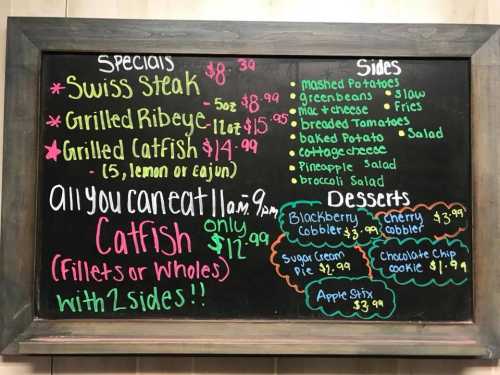 Specials
* Swiss Steak $8.39
* Grilled Ribeye - 5oz $8.99
- 12oz $15.95
★ Grilled Catfish $14.99
- (5, lemon or cajun)
all you can eat 11a.m. - 9pm
Catfish only $12.99
(Fillets or Wholes)
with 2 sides!!
Sides
• mashed Potatoes
• greenbeans • slaw
• mac + cheese • Fries
• breaded Tomatoes
• baked Potato • Salad
• cottage cheese
• Pineapple Salad
• broccoli Salad
Desserts
Blackberry cobbler $3.99
Cherry cobbler $3.99
Sugar Cream Pie $2.99
Chocolate Chip cookie $1.99
Apple Stix $3.99